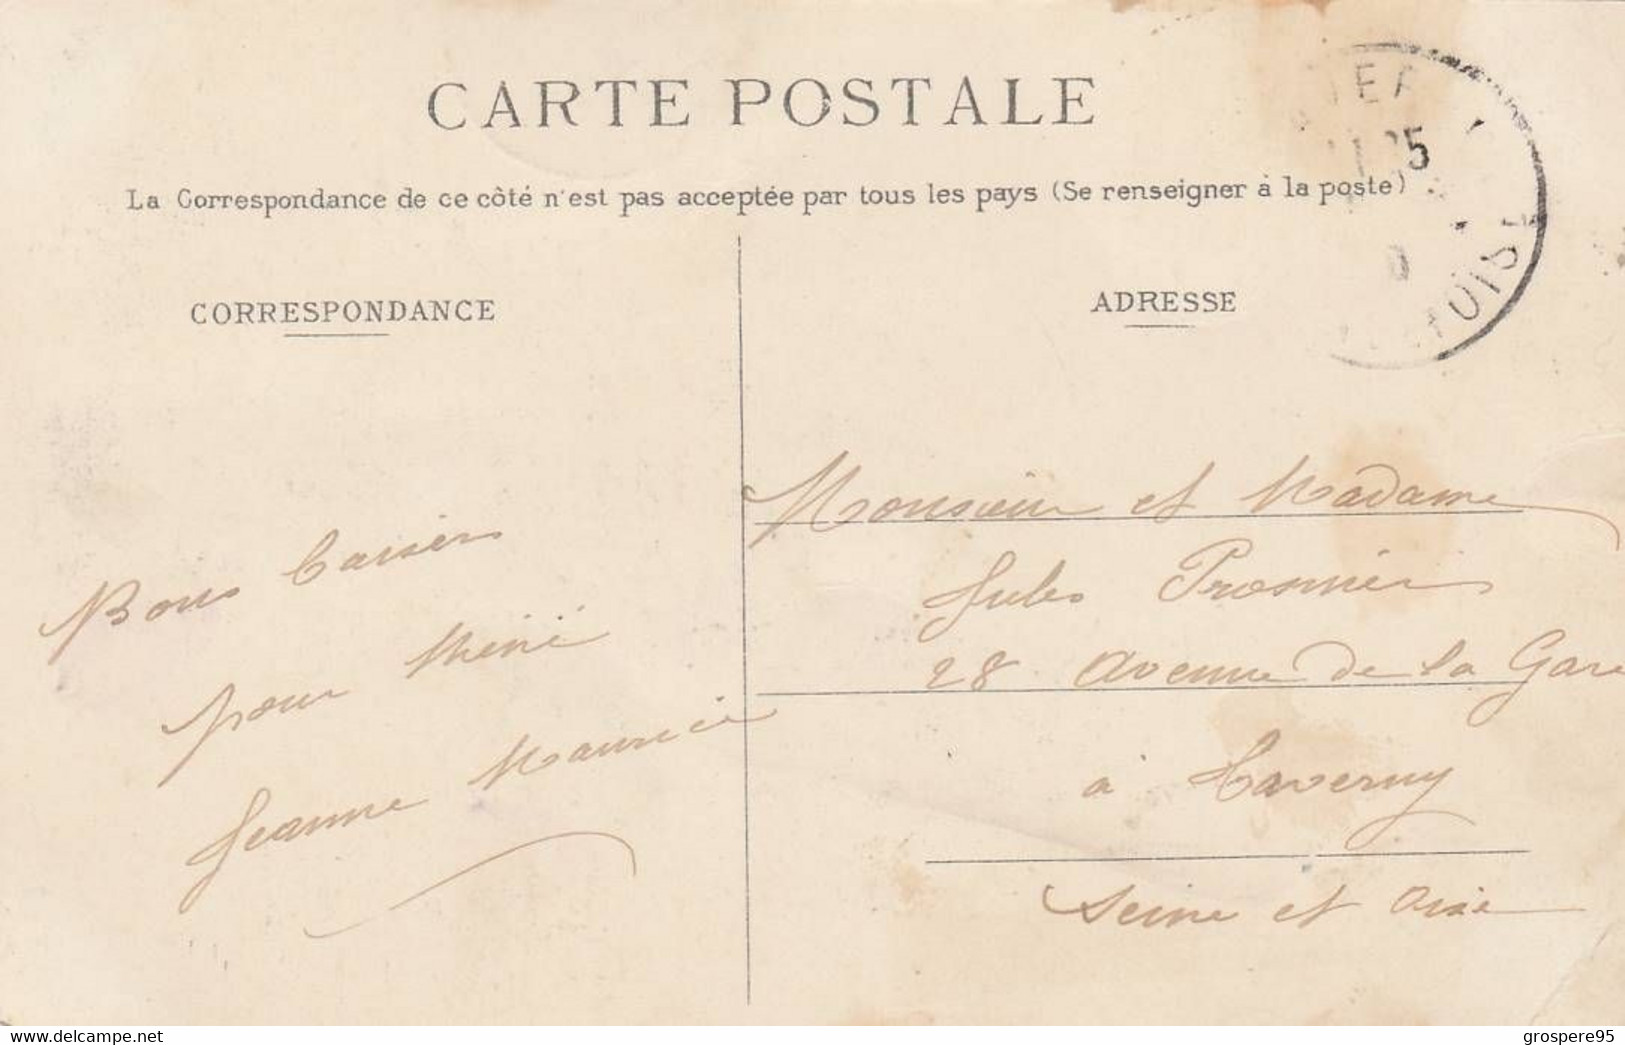 CARTE POSTALE
La Correspondance de ce côté n'est pas acceptée par tous les pays (Se renseigner à la poste)
CORRESPONDANCE
Bons baisers
pour Mimi
Jeanne Maurice
ADRESSE
Monsieur et Madame
Jules Prosnier
28 Avenue de la Gare
à Taverny
Seine et Oise
www.delcampe.net
grospere95